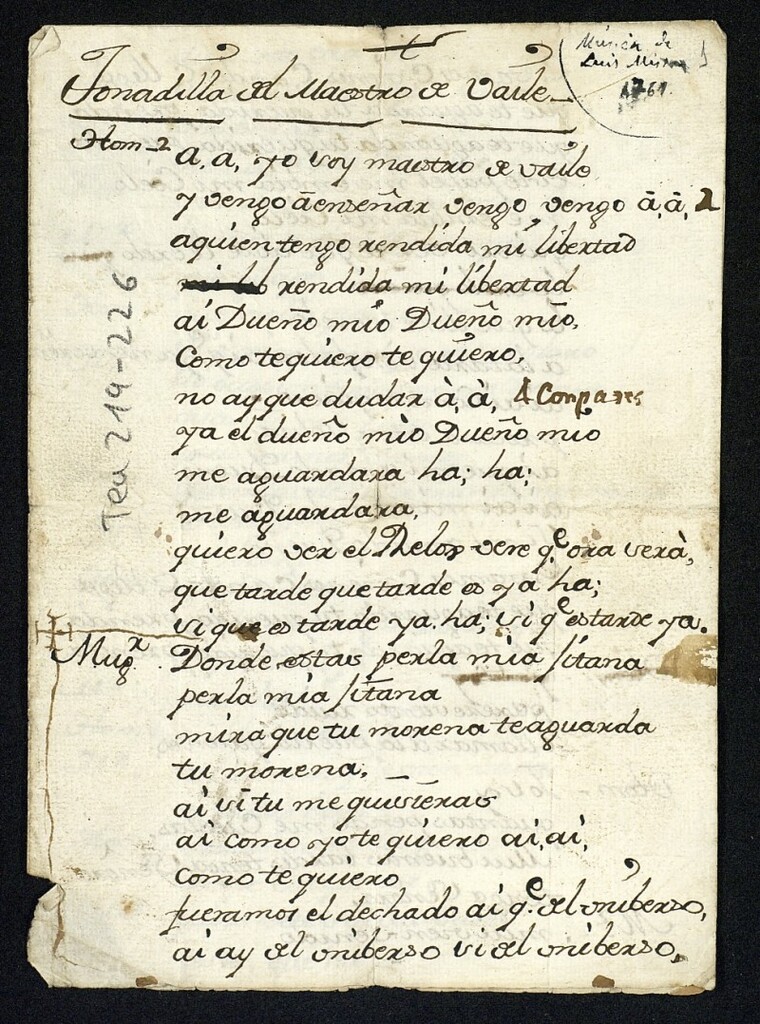 Música de
Luis Misón
1761
Tonadilla del Maestro de Vaile
Hom_2
a, a, yo soy maestro de vaile
y vengo a enseñar vengo vengo à, à, 2
aquien tengo rendida mi libertad
rendida mi libertad
ai Dueño mio Dueño mio,
Como te quiero te quiero,
no ay que dudar à, à, 4 Conpases
ya el dueño mio Dueño mio
me aguardara ha; ha;
me aguardara,
quiero ver el Relox vere qe ora serà,
que tarde que tarde es ya ha;
si que es tarde ya, ha; si qe es tarde ya.
Mugr. Donde estas perla mia jitana
perla mia jitana
mira que tu morena te aguarda
tu morena,
ai si tu me quisieras
ai como yo te quiero ai, ai,
como te quiero
fueramos el dechado ai qe. del uniberso,
ai ay del uniberso si del uniberso,
Tea 219-226